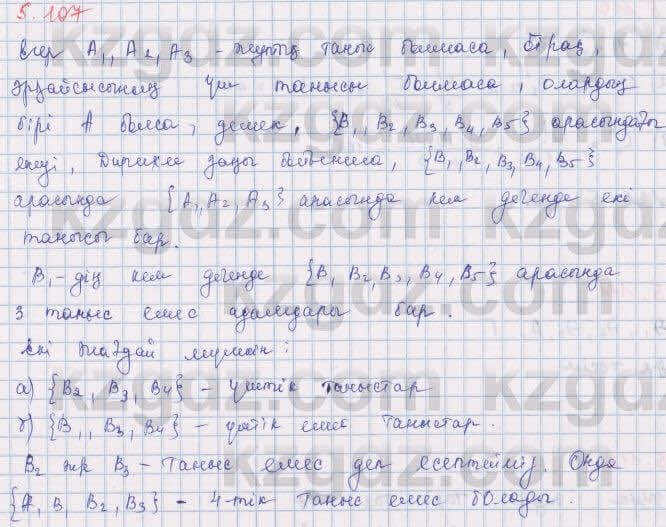 5.107
егер A₁, A₂, A₃ - жұптық таныс болмаса, бірақ,
әрқайсысының үш танысы болмаса, олардың
бірі A болса, демек, {B₁, B₂, B₃, B₄, B₅} арасындағы
екеуі, Дирихле заңы бойынша, {B₁, B₂, B₃, B₄, B₅}
арасында {A₁, A₂, A₃} арасында кем дегенде екі
танысы бар.
B₁-дің кем дегенде {B₁, B₂, B₃, B₄, B₅} арасында
3 таныс емес адамдары бар.
Екі жағдай мүмкін:
а) {B₂, B₃, B₄} - үштік таныстар
б) {B₁, B₃, B₄} - үштік емес таныстар.
B₂ және B₃ - таныс емес деп есептейміз. Онда
{A, B, B₂, B₃} - 4-тік таныс емес болады.
kzgdz.com